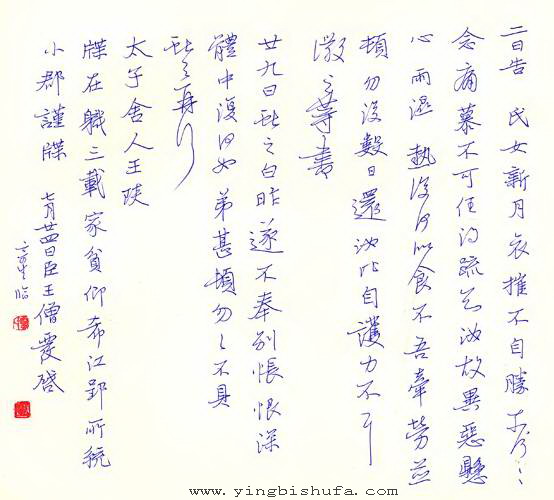 二日告 氏女新月哀摧不自勝奈何〻
念痛慕不可任得疏知汝故異惡懸
心雨濕熱復何似食不吾牽勞並
頓勿復數日還汝比自護力不具
徽之等書
廿九日獻之白昨遂不奉別悵恨深
體中復何如弟甚頓勿〻不具
獻之再拜
太子舍人王琰
牒在職三載家貧仰希江郢所統
小郡謹牒 七月廿四日臣王僧虔啓
臨
www.yingbishufa.com